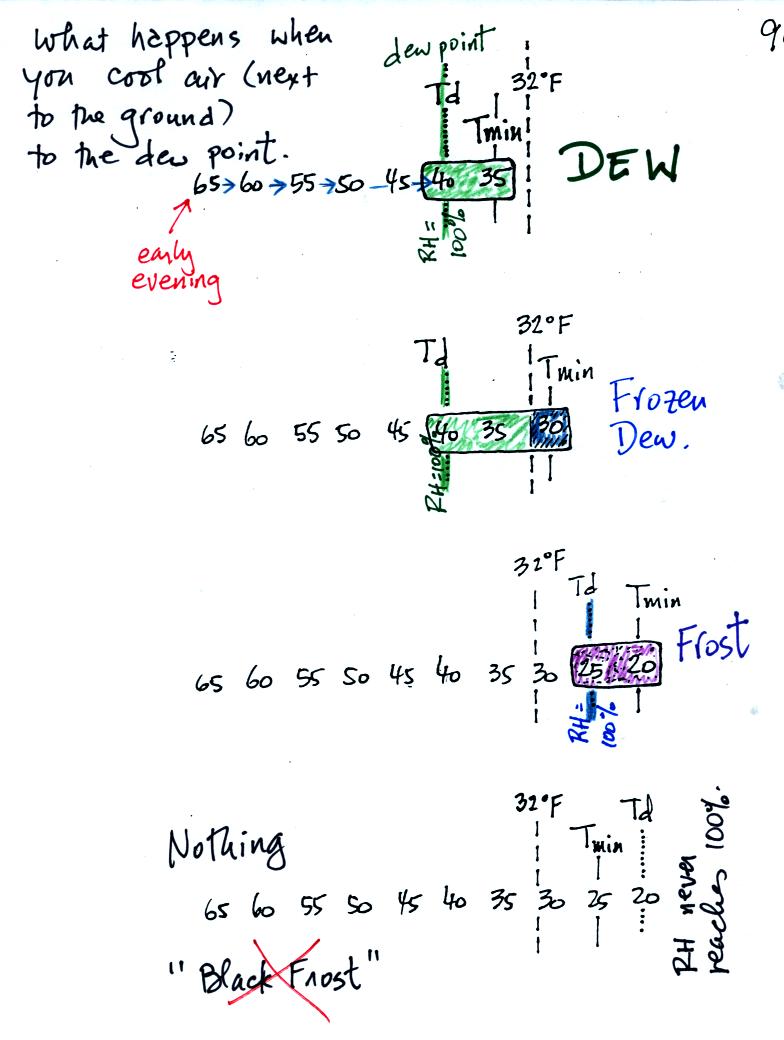 What happens when
you cool air (next
to the ground)
to the dew point.
dew point
Td
32°F
Tmin
65→60→55→50 →45→40 35
DEW
RH =
100%
early
evening
32°F
Td
Tmin
65 60 55 50 45 40 35 30
RH=100%
Frozen
Dew.
32°F
Td
Tmin
65 60 55 50 45 40 35 30 25 20
Frost
RH =
100%
32°F
Td
Tmin
Nothing
65 60 55 50 45 40 35 30 25 20
RH never
reaches 100%.
"Black Frost"